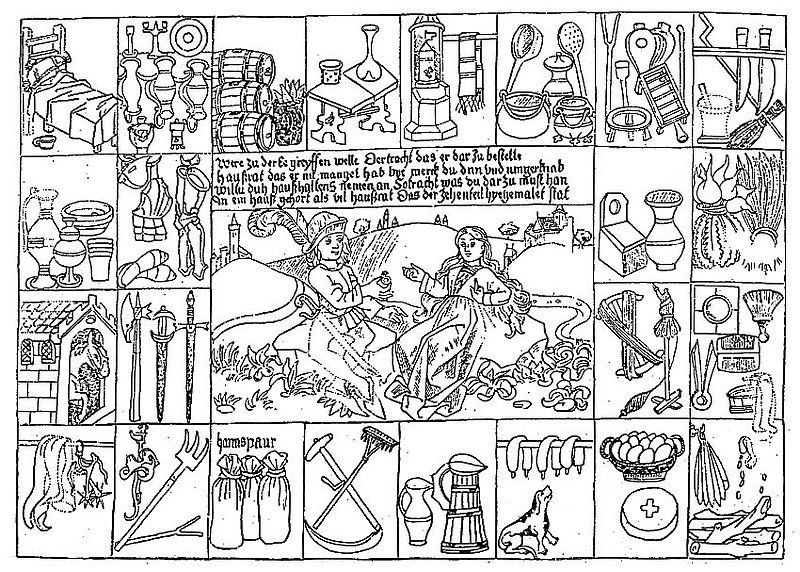 Were zu der Ee greyffen welle Der tracht das er dar zu bestelle
haußrat das er nit mangel hab bys merck du dirn vnd iunger knab
Wiltu duh haushaltens nemen an So tracht was du dar zu must han
In ein hauß gehort als vil haußrat Das der zehenteil hye gemalet stat